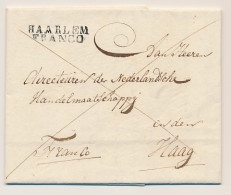 HAARLEM
FRANCO
Aan Heeren
Directeuren de Nederlandsche
Handelmaatschappij
in den
Franco Haag